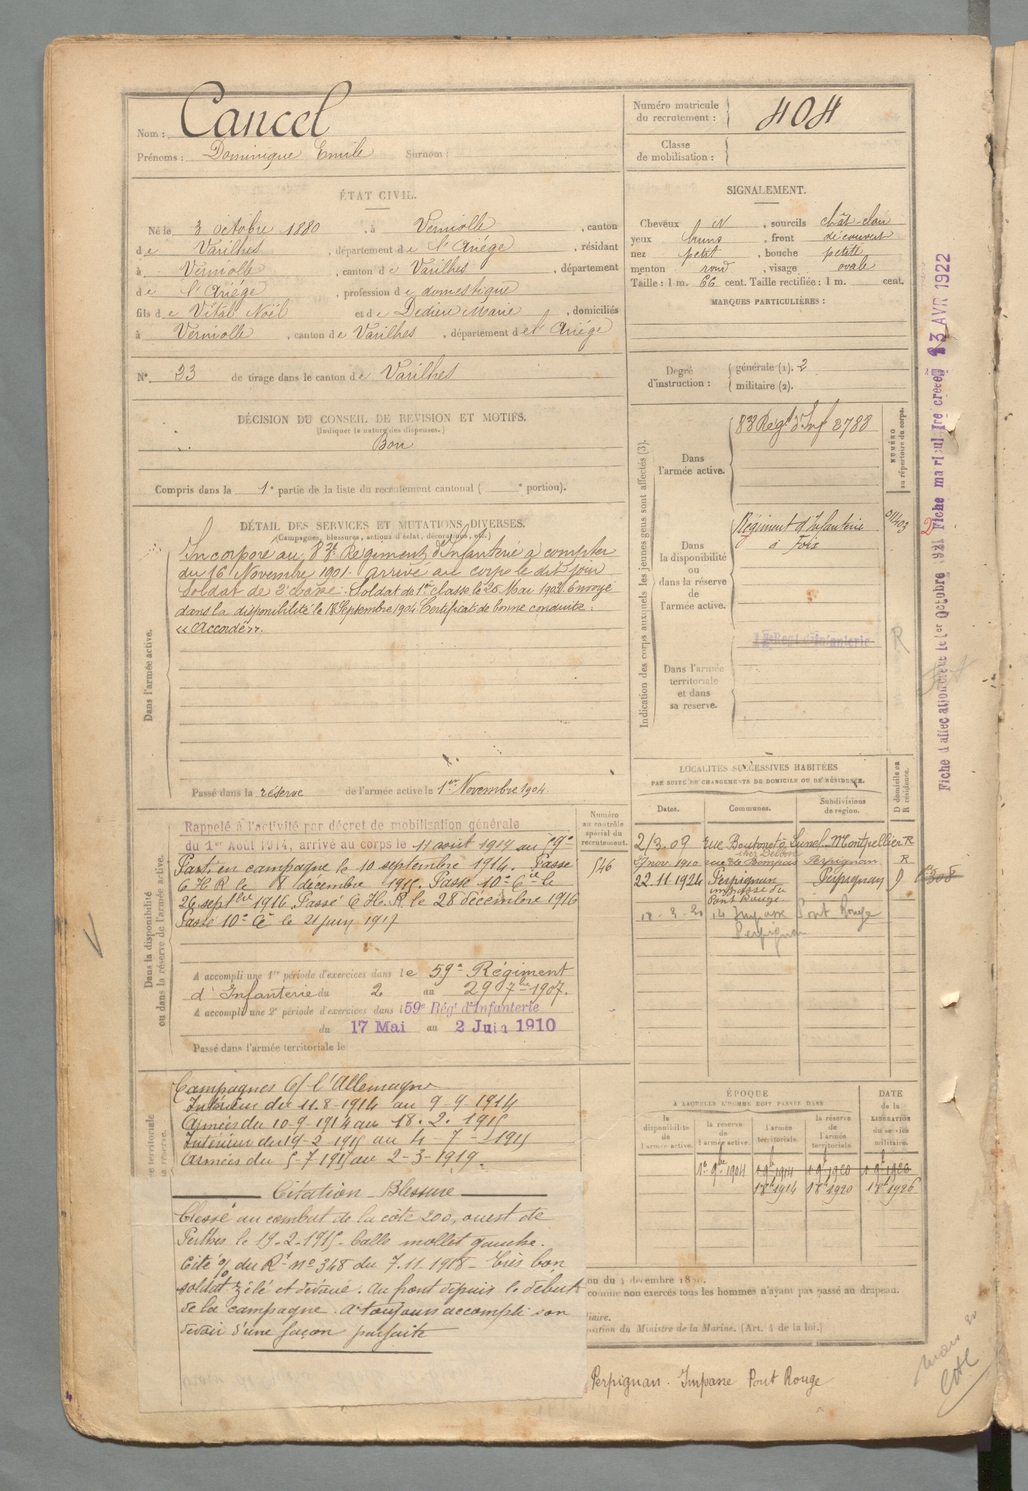 Nom : Cancel
Prénoms : Dominique Emile Surnom :
Numéro matricule du recrutement : 404
Classe de mobilisation :
ÉTAT CIVIL.
Né le 3 octobre 1880, à Verniolle, canton
de Varilhes, département de l'Ariége, résidant
à Verniolle, canton de Varilhes, département
de l'Ariége, profession de domestique
fils de Vital Noël et de Dedieu Marie, domiciliés
à Verniolle, canton de Varilhes, département de l'Ariége
N° 23 de tirage dans le canton de Varilhes
DÉCISION DU CONSEIL DE REVISION ET MOTIFS.
(Indiquer la nature des dispenses.)
Bon
Compris dans la 1e partie de la liste du recrutement cantonal ( e portion).
SIGNALEMENT.
Cheveux id, sourcils chât-clair
yeux bruns, front découvert
nez petit, bouche petite
menton rond, visage ovale
Taille : 1 m. 66 cent. Taille rectifiée : 1 m. cent.
MARQUES PARTICULIÈRES :
Degré d'instruction : générale (1). 2
militaire (2).
DÉTAIL DES SERVICES ET MUTATIONS DIVERSES.
(Campagnes, blessures, actions d'éclat, décorations, etc.)
Dans l'armée active.
Incorporé au 83e Régiment d'Infanterie à compter
du 16 Novembre 1901 arrivé au corps le dit jour
soldat de 2e classe. Soldat de 1re classe le 25 Mai 1902 Envoyé
dans la disponibilité le 18 Septembre 1904. Certificat de bonne conduite :
"Accordé".
Passé dans la réserve de l'armée active le 1er Novembre 1904.
Indication des corps auxquels les jeunes gens sont affectés (3).
NUMÉRO au répertoire du corps.
Dans l'armée active.
83e Régt d'Inf 2788
Dans la disponibilité ou dans la réserve de l'armée active.
Régiment d'Infanterie
à Foix
Dans l'armée territoriale et dans sa réserve.
LOCALITÉS SUCCESSIVES HABITÉES
PAR SUITE DE CHANGEMENTS DE DOMICILE OU DE RÉSIDENCE.
Dates. Communes. Subdivisions de région. D domicile ou R résidence.
2/3.09 Lunel Montpellier R
nov 1910 Perpignan R
22.11.1924 Perpignan Perpignan D
impasse du
Pont Rouge
14 Impasse Pont Rouge
Perpignan
Dans la disponibilité ou dans la réserve de l'armée active.
Numéro au contrôle spécial du recrutement.
546
Rappelé à l'activité par décret de mobilisation générale
du 1er Août 1914, arrivé au corps le 11 août 1914 au 59e
Parti en campagne le 10 septembre 1914. Passé
C.H.R le 8 décembre 1915. Passé 10e Cie le
26 septbre 1916. Passé C.H.R. le 28 décembre 1916
Passé 10e Cie le 21 juin 1917
A accompli une 1re période d'exercices dans le 59e Régiment
d'Infanterie du 2 au 29 7bre 1907.
A accompli une 2e période d'exercices dans le 59e Régt d'Infanterie
du 17 Mai au 2 Juin 1910
Passé dans l'armée territoriale le
Campagnes C/ l'Allemagne
Intérieur du 11.8-1914 au 9-9-1914
Armées du 10-9-1914 au 18.2.1915
Intérieur du 19-2-1915 au 4-7-1915
Armées du 5-7-1915 au 2-3-1919.
Citation – Blessure
Blessé au combat de la côte 200, ouest de
Perthes le 17-2-1915. balle mollet gauche.
Cité o/ du Rt n° 348 du 7.11.1918 - très bon
soldat zélé et dévoué. Au front depuis le début
de la campagne. A toujours accompli son
devoir d'une façon parfaite
ÉPOQUE
À LAQUELLE L'HOMME DOIT PASSER DANS
DATE de la LIBÉRATION du service militaire.
la disponibilité de l'armée active. la réserve de l'armée active. l'armée territoriale. la réserve de l'armée territoriale.
1er 9bre 1904
1er 8bre 1914 1er 8bre 1920 1er 8bre 1926
comme non exercés tous les hommes n'ayant pas passé au drapeau.
du Ministre de la Marine. (Art. 4 de la loi.)
Perpignan. Impasse Pont Rouge
Fiche d'affectation créée le 1er Octobre 1921 Fiche matricul re créée 13 AVR 1922